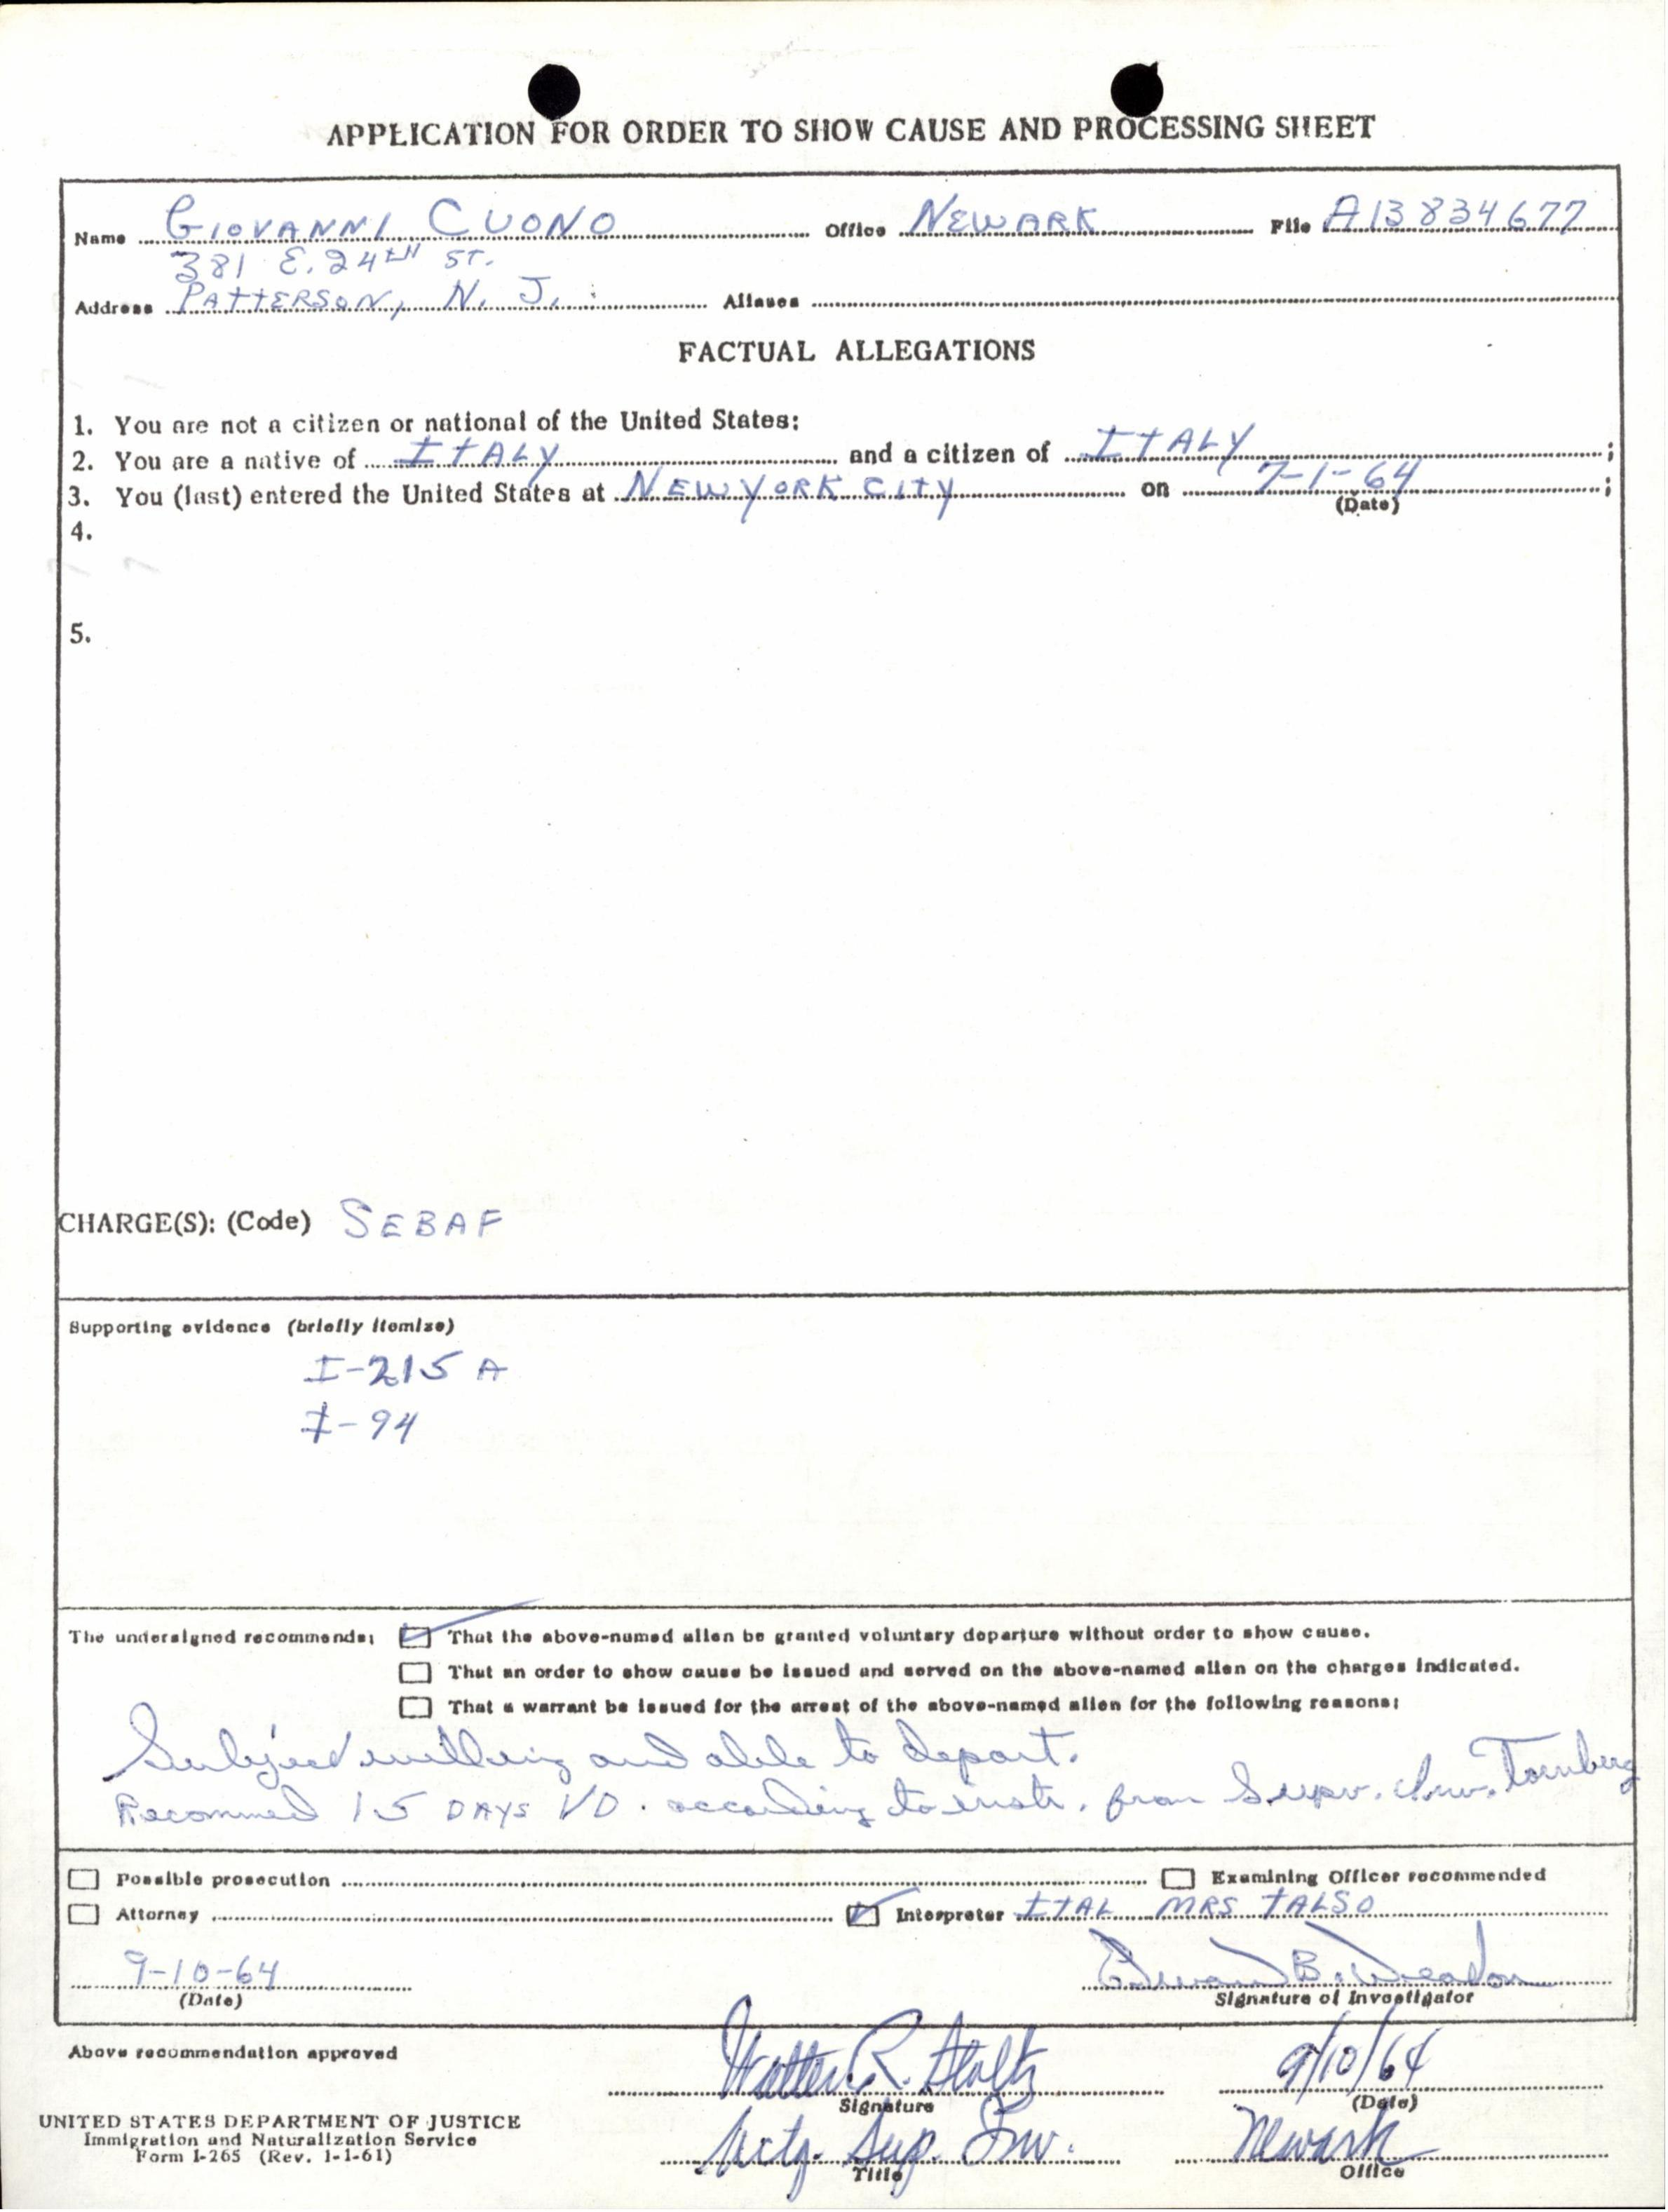 APPLICATION FOR ORDER TO SHOW CAUSE AND PROCESSING SHEET
Name GIOVANNI CUONO Office NEWARK File A13 834 677
381 E. 24TH ST.
Address PATTERSON, N. J. Aliases
FACTUAL ALLEGATIONS
1. You are not a citizen or national of the United States:
2. You are a native of ITALY and a citizen of ITALY ;
3. You (last) entered the United States at NEW YORK CITY on 7-1-64 ;
(Date)
4.
5.
CHARGE(S): (Code) SEBAF
Supporting evidence (briefly itemize)
I-215 A
I-94
The undersigned recommends: That the above-named alien be granted voluntary departure without order to show cause.
That an order to show cause be issued and served on the above-named alien on the charges indicated.
That a warrant be issued for the arrest of the above-named alien for the following reasons:
Subject willing and able to depart.
Recommed 15 DAYS VD. according to instr. from Superv. Inv. Tornberg
Possible prosecution Examining Officer recommended
Attorney Interpreter ITAL MRS TALSO
9-10-64 Edward B.
(Date) Signature of Investigator
Above recommendation approved Walter R. Stoltz 9/10/64
Signature (Date)
UNITED STATES DEPARTMENT OF JUSTICE
Immigration and Naturalization Service Actg. Sup. Inv. Newark
Form I-265 (Rev. 1-1-61) Title Office